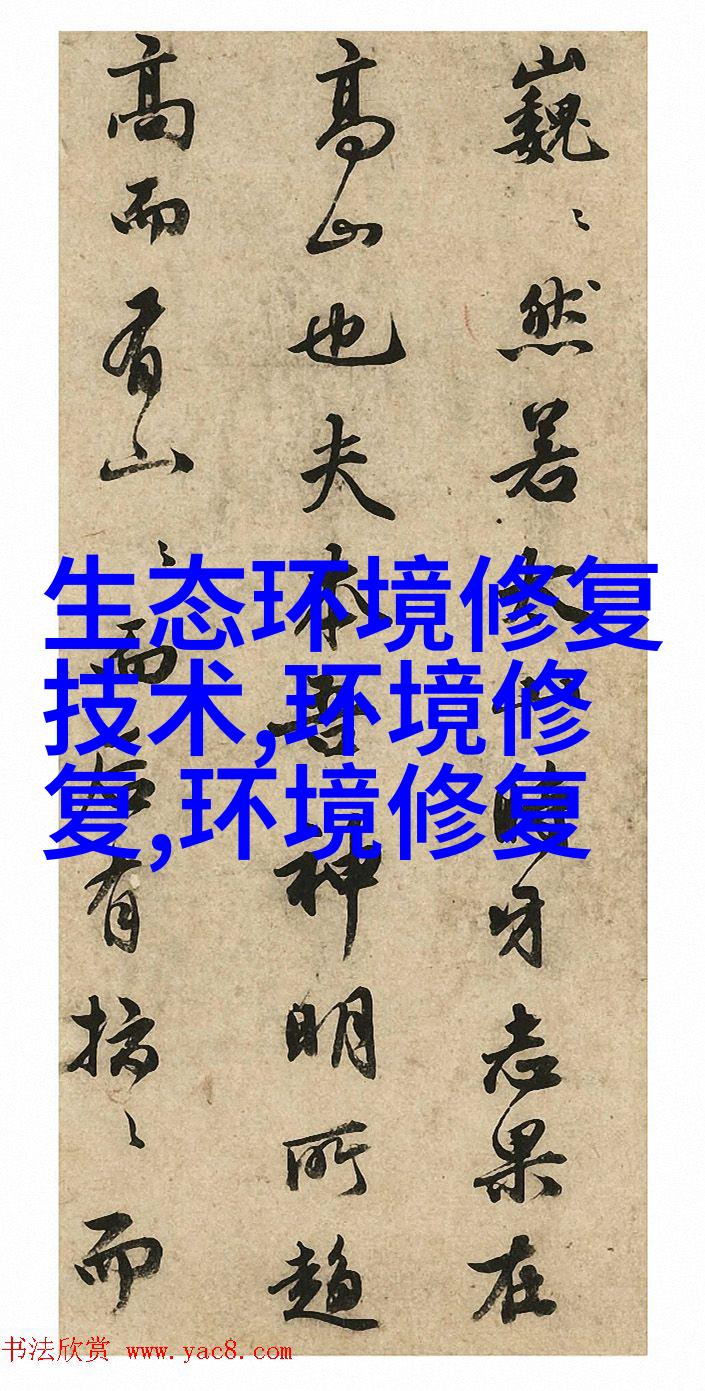 巍〻然若時牙志果在
高山也夫本吾神明所趨
高而有山〻而有〻而
生态环境修复
技术,环境修
复,环境修复
书法欣赏 www.yac8.com